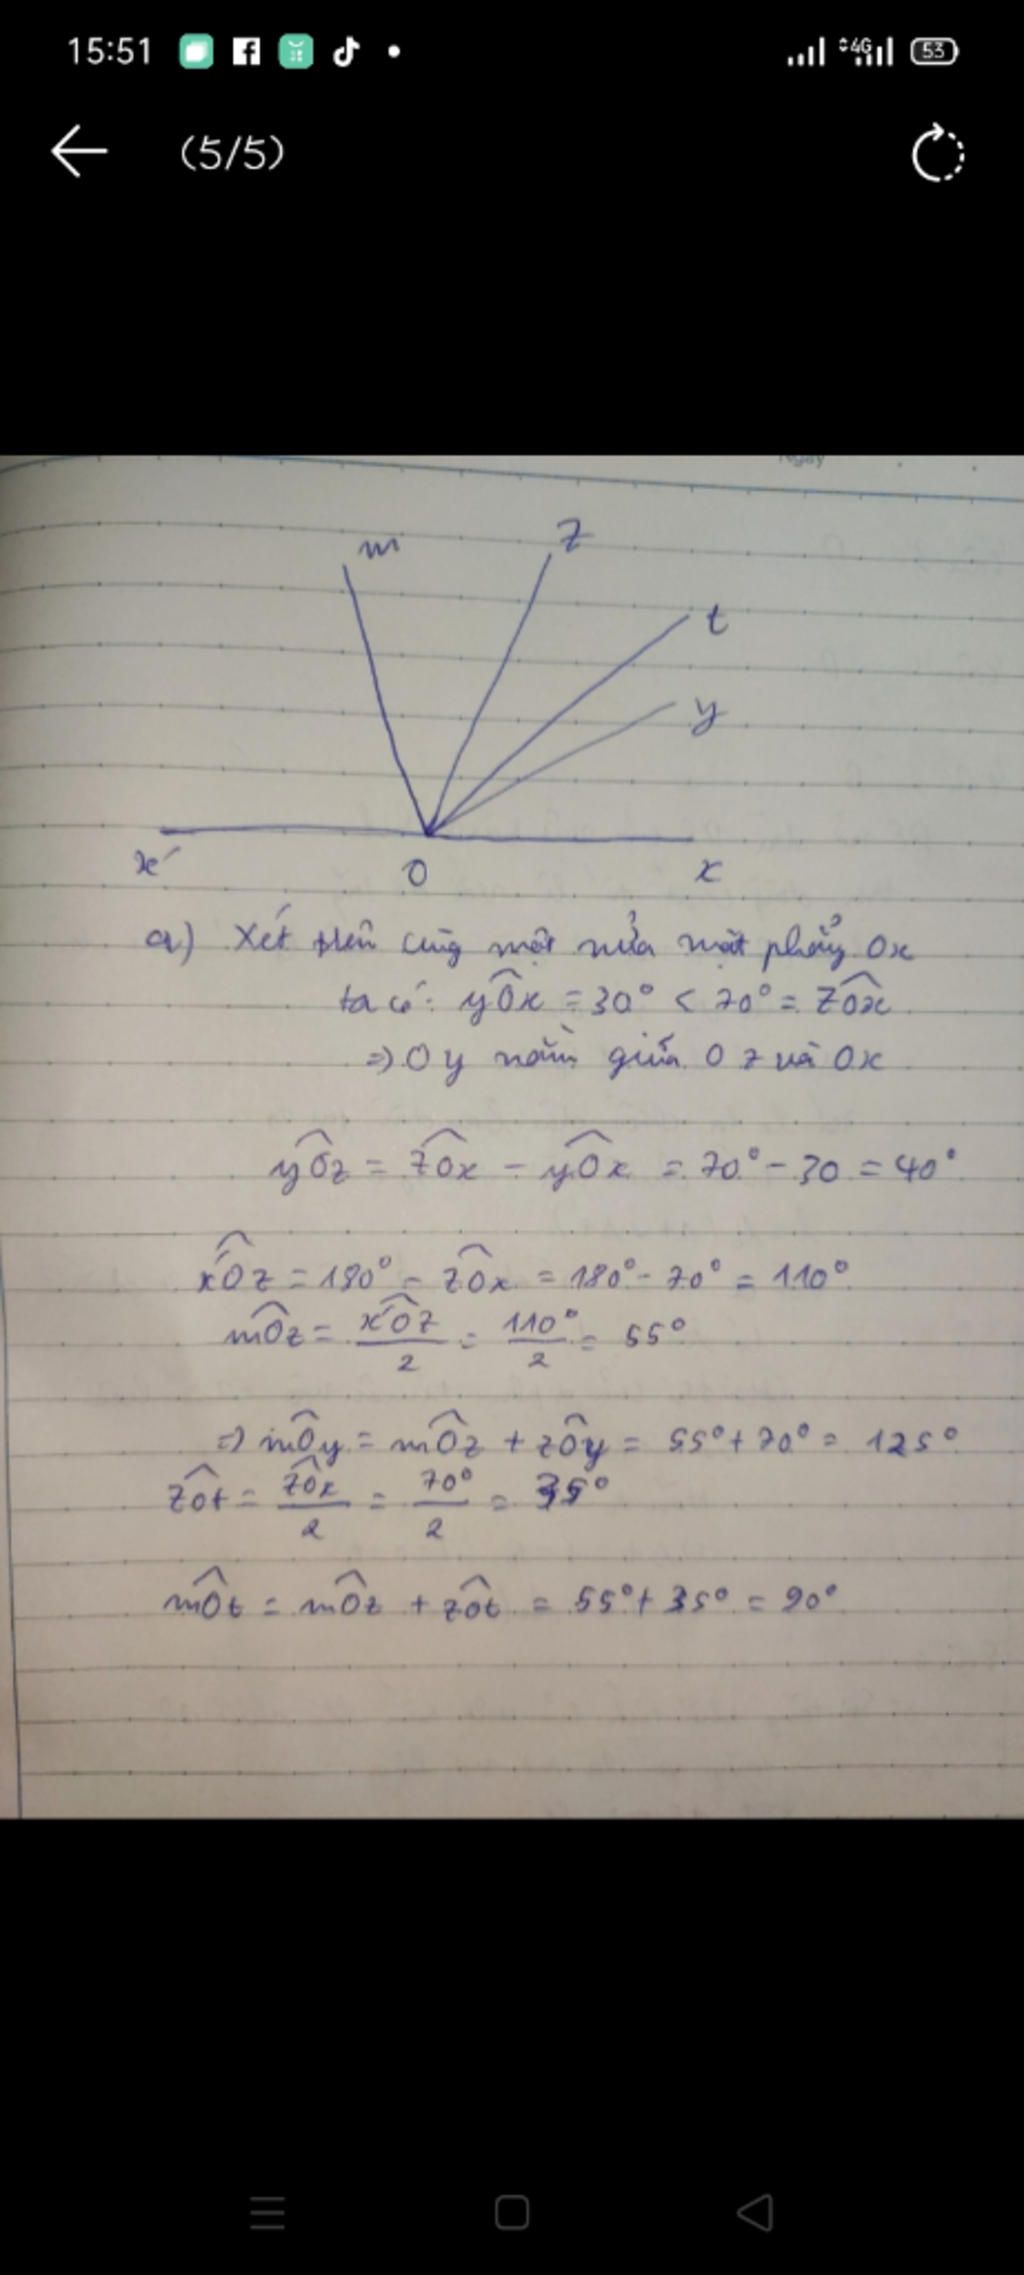 15:51
4G
53
(5/5)
Ngày
m
z
t
y
x'
O
x
a) Xét trên cùng một nửa mặt phẳng Ox
ta có: yÔx = 30° < 70° = zÔx
=> Oy nằm giữa Oz và Ox
yÔz = zÔx - yÔx = 70° - 30 = 40°
x'Ôz = 180° - zÔx = 180° - 70° = 110°
mÔz = x'Ôz/2 = 110°/2 = 55°
=> mÔy = mÔz + zÔy = 55° + 70° = 125°
zÔt = zÔx/2 = 70°/2 = 35°
mÔt = mÔz + zÔt = 55° + 35° = 90°